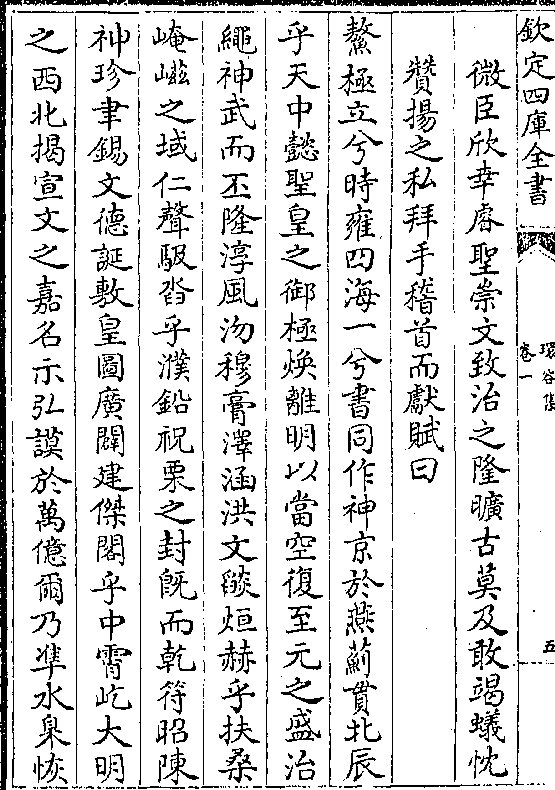 欽定四庫全書
環谷集
卷一
五
微臣欣幸睿聖崇文致治之隆曠古莫及敢竭蟻忱
贊揚之私拜手稽首而獻賦曰
鰲極立兮時雍四海一兮書同作神京於燕薊貫北辰
乎天中懿聖皇之御極煥離明以當空復至元之盛治
繩神武而丕隆淳風沕穆膏澤涵洪文燄烜赫乎扶桑
崦嵫之域仁聲馺沓乎濮鉛祝栗之封既而乾符昭陳
神珍聿錫文德誕敷皇圖廣闢建傑閣乎中霄屹大明
之西北揭宣文之嘉名示弘謨於萬億爾乃準水臬恢